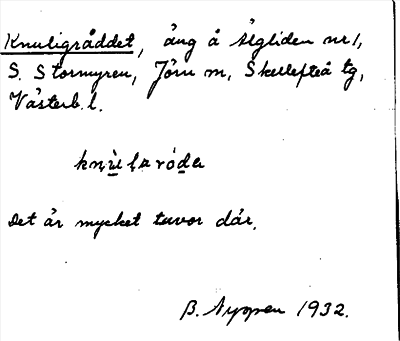 Knuligråddet, äng å Älgliden nr 1,
S. Stormyren, Jörn sn, Skellefteå tg,
Västerb. l.
knùlaróda
Det är mycket tuvor där.
B. Nyppen 1932.